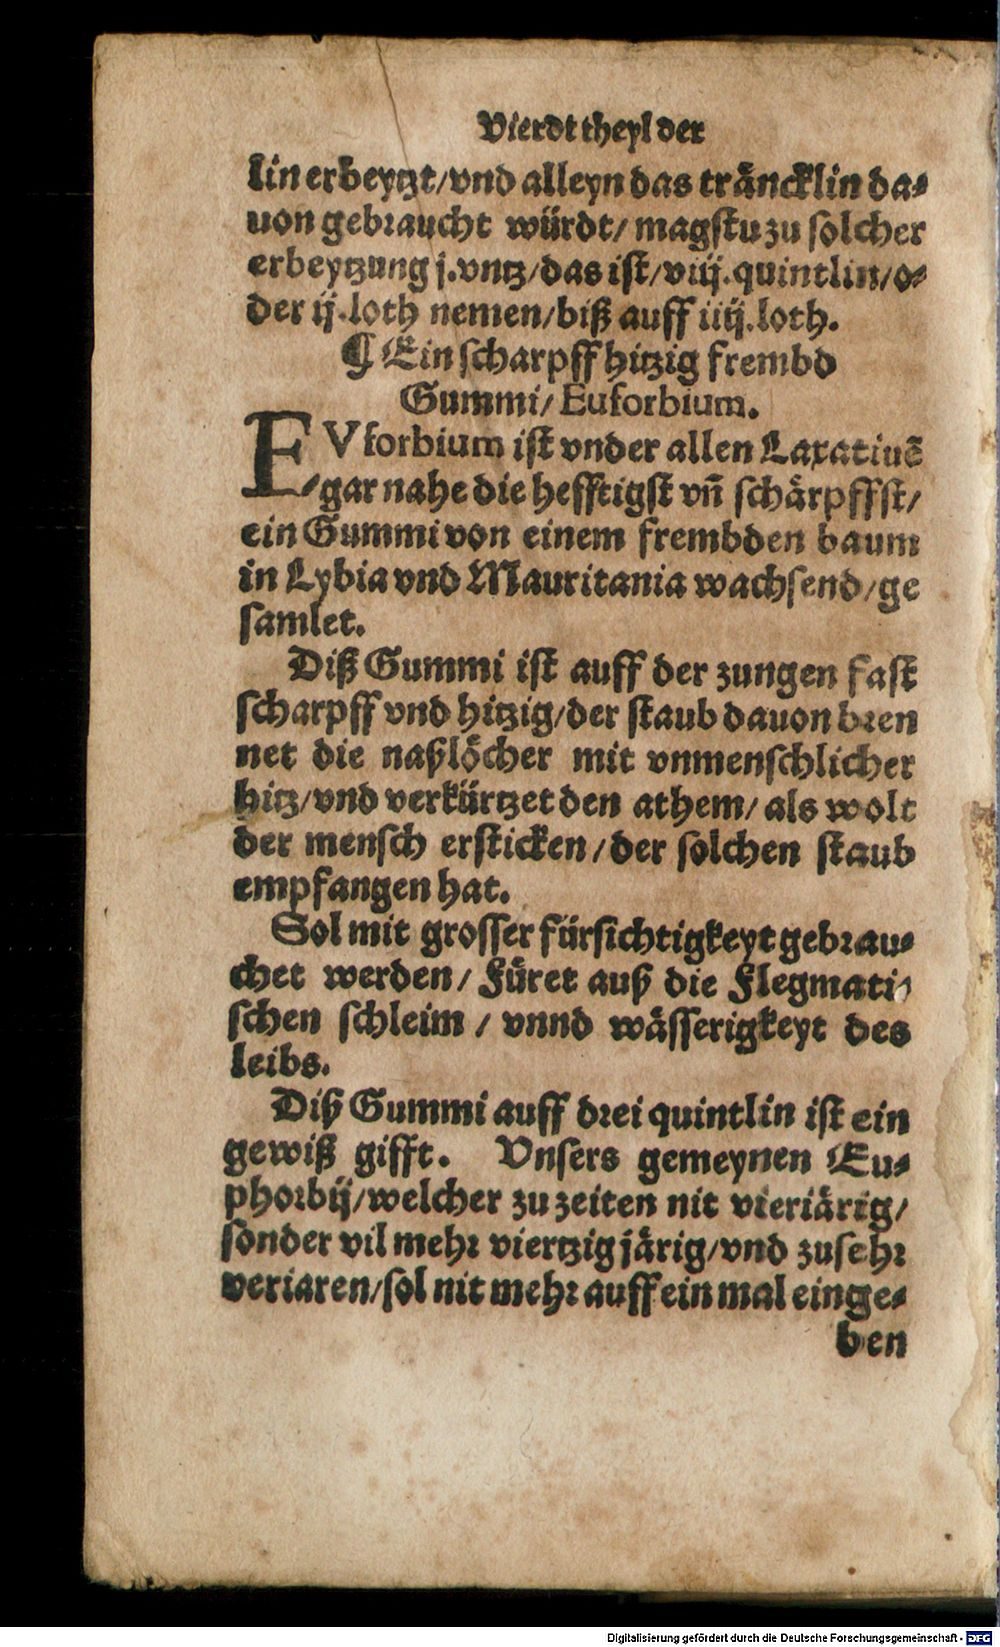 Vierdt theyl der
lin erbeytzt/vnd alleyn das träncklin da⸗
uon gebraucht würdt/ magstu zu solcher
erbeytzung j.vntz/das ist/viij.quintlin/o⸗
der ij.loth nemen/biß auff iiij.loth.
¶ Ein scharpff hitzig frembd
Gummi/ Euforbium.
EVforbium ist vnder allen Laxatiuē
gar nahe die hefftigst vñ schärpffst/
ein Gummi von einem frembden baum
in Lybia vnd Mauritania wachsend/ge
samlet.
Diß Gummi ist auff der zungen fast
scharpff vnd hitzig/der staub dauon bren
net die naßlöcher mit vnmenschlicher
hitz/vnd verkürtzet den athem/ als wolt
der mensch ersticken/der solchen staub
empfangen hat.
Sol mit grosser fürsichtigkeyt gebrau⸗
chet werden/ Füret auß die Flegmati⸗
schen schleim / vnnd wässerigkeyt des
leibs.
Diß Gummi auff drei quintlin ist ein
gewiß gifft. Vnsers gemeynen Eu⸗
phorbij/welcher zu zeiten nit vieriärig/
sonder vil mehr viertzig järig/vnd zusehr
veriaren/sol nit mehr auff ein mal einge⸗
ben
Digitalisierung gefördert durch die Deutsche Forschungsgemeinschaft - DFG